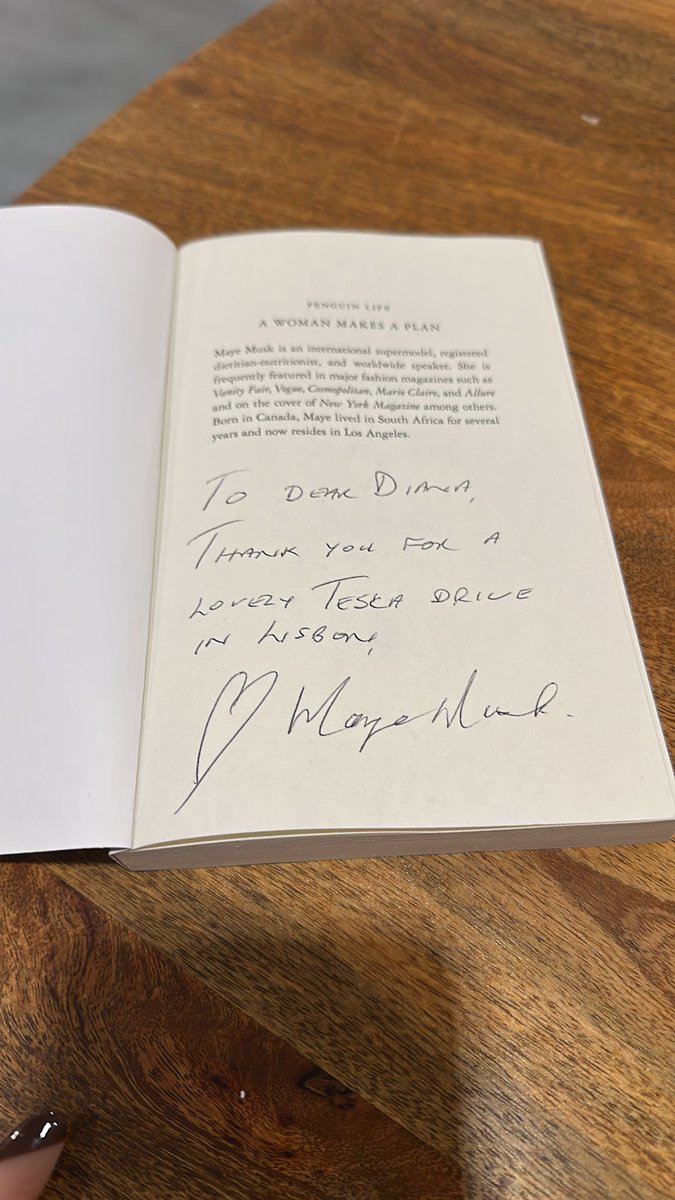 PENGUIN LIFE
A WOMAN MAKES A PLAN
Maye Musk is an international supermodel, registered
dietitian-nutritionist, and worldwide speaker. She is
frequently featured in major fashion magazines such as
Vanity Fair, Vogue, Cosmopolitan, Marie Claire, and Allure
and on the cover of New York Magazine among others.
Born in Canada, Maye lived in South Africa for several
years and now resides in Los Angeles.
TO DEAR DIANA,
THANK YOU FOR A
LOVELY TESLA DRIVE
IN LISBON,
Maye Musk.